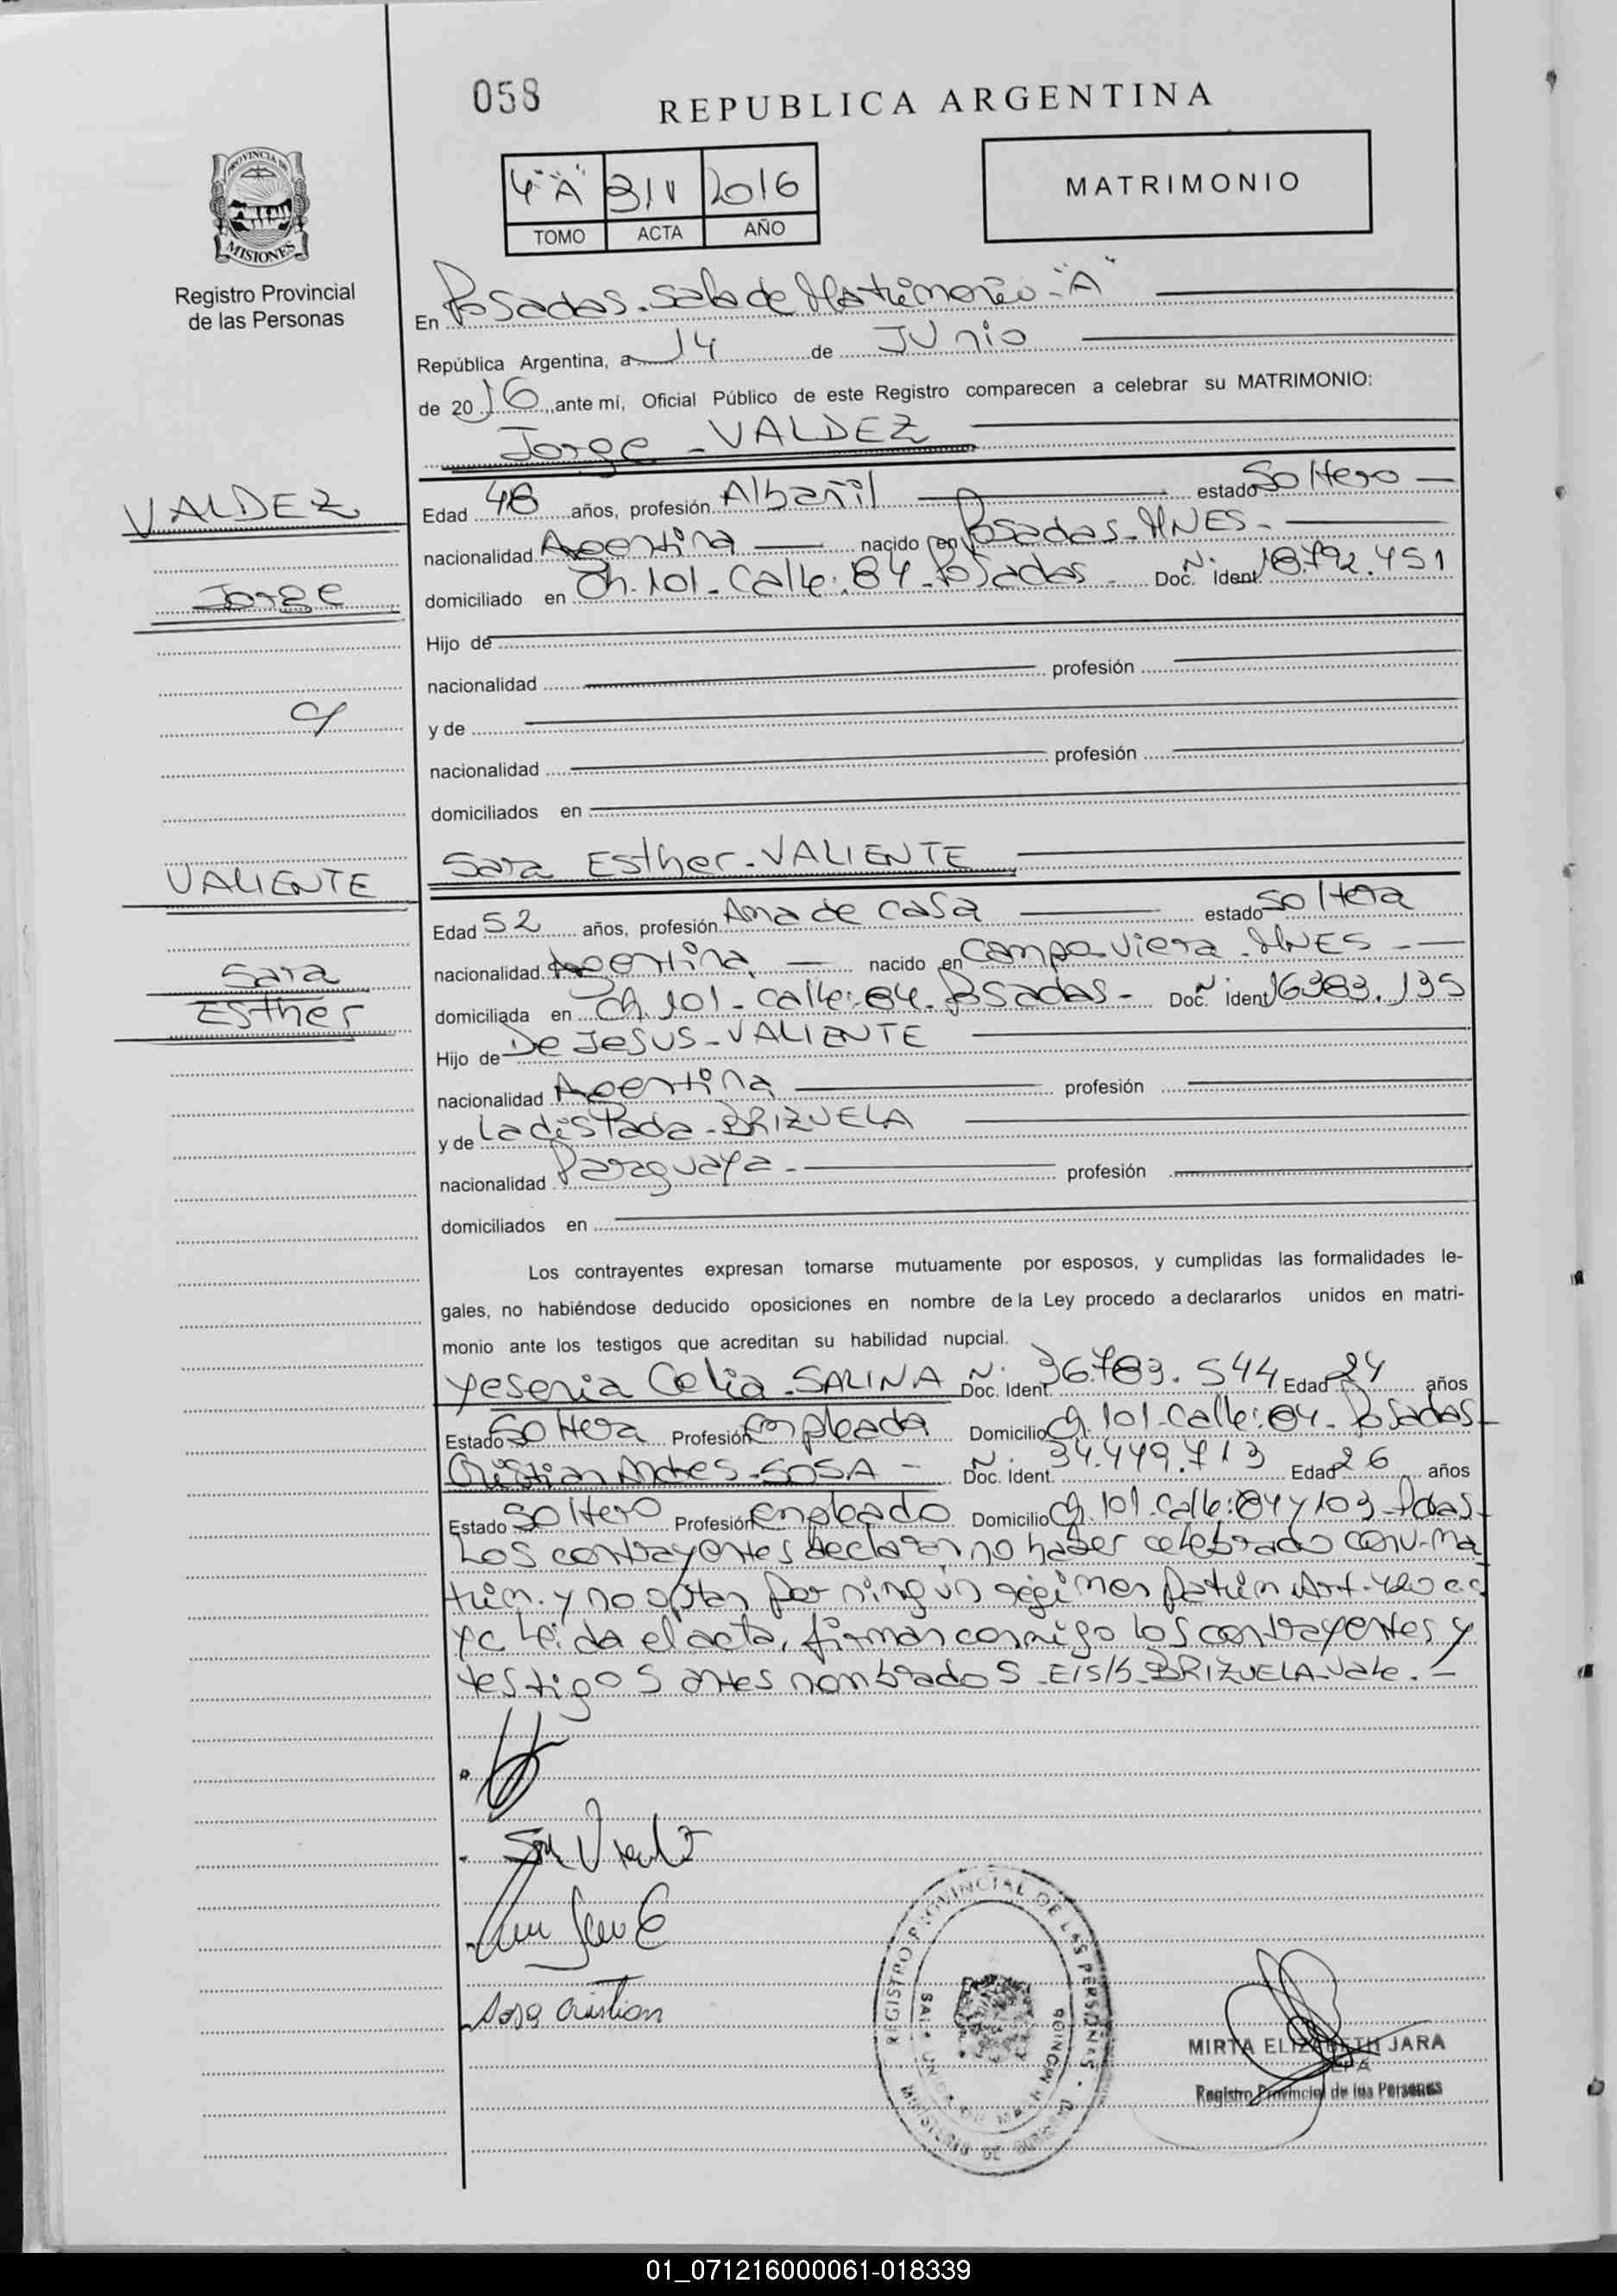 058
REPUBLICA ARGENTINA
4° "A" 2016
TOMO ACTA AÑO
MATRIMONIO
PROVINCIA DE
MISIONES
Registro Provincial
de las Personas
En Posadas. Sala de Matrimonio - "A"
República Argentina, a 14 de JUnio
de 20 16 ,ante mí, Oficial Público de este Registro comparecen a celebrar su MATRIMONIO:
Jorge - VALDEZ
VALDEZ
Jorge
y
Edad 48 años, profesión Albañil estado Soltero
nacionalidad Argentina nacido en Posadas. MNES -
domiciliado en Ch. 101 - Calle: 84 - Posadas - Doc. N° Ident. 18.792.451
Hijo de
nacionalidad profesión
y de
nacionalidad profesión
domiciliados en
Sara Esther - VALIENTE
VALIENTE
Sara
Esther
Edad 52 años, profesión Ama de casa estado Soltera
nacionalidad Argentina nacido en Campo Viera. MNES -
domiciliada en Ch. 101 - calle: 84 - Posadas - Doc. N° Ident. 16383.135
Hijo de De JESUS - VALIENTE
nacionalidad Argentina profesión
y de Ladislada - BRIZUELA
nacionalidad Paraguaya - profesión
domiciliados en
Los contrayentes expresan tomarse mutuamente por esposos, y cumplidas las formalidades le-
gales, no habiéndose deducido oposiciones en nombre de la Ley procedo a declararlos unidos en matri-
monio ante los testigos que acreditan su habilidad nupcial.
Yesenia Celia - SALINA Doc. N° Ident. 36.783.544 Edad 24 años
Estado Soltera Profesión Empleada Domicilio Ch. 101 - Calle: 84 - Posadas -
Cristian Andres - SOSA - Doc. N° Ident. 34.449.713 Edad 26 años
Estado Soltero Profesión Empleado Domicilio Ch. 101. Calle: 84 y 103 - Pdas -
Los contrayentes declaran no haber celebrado conv. ma
trim. y no optan por ningún régimen patrim Art. 420 c.c
y c Leída el acta, firman conmigo los contrayentes y
testigos antes nombrados - E/S/b - BRIZUELA - Vale. -
Sosa Cristian
REGISTRO PROVINCIAL DE LAS PERSONAS
MIRTA ELIZABETH JARA
Registro Provincial de las Personas
01_071216000061-018339